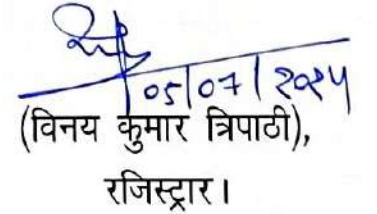 05/07/२०२५
(विनय कुमार त्रिपाठी),
रजिस्ट्रार।